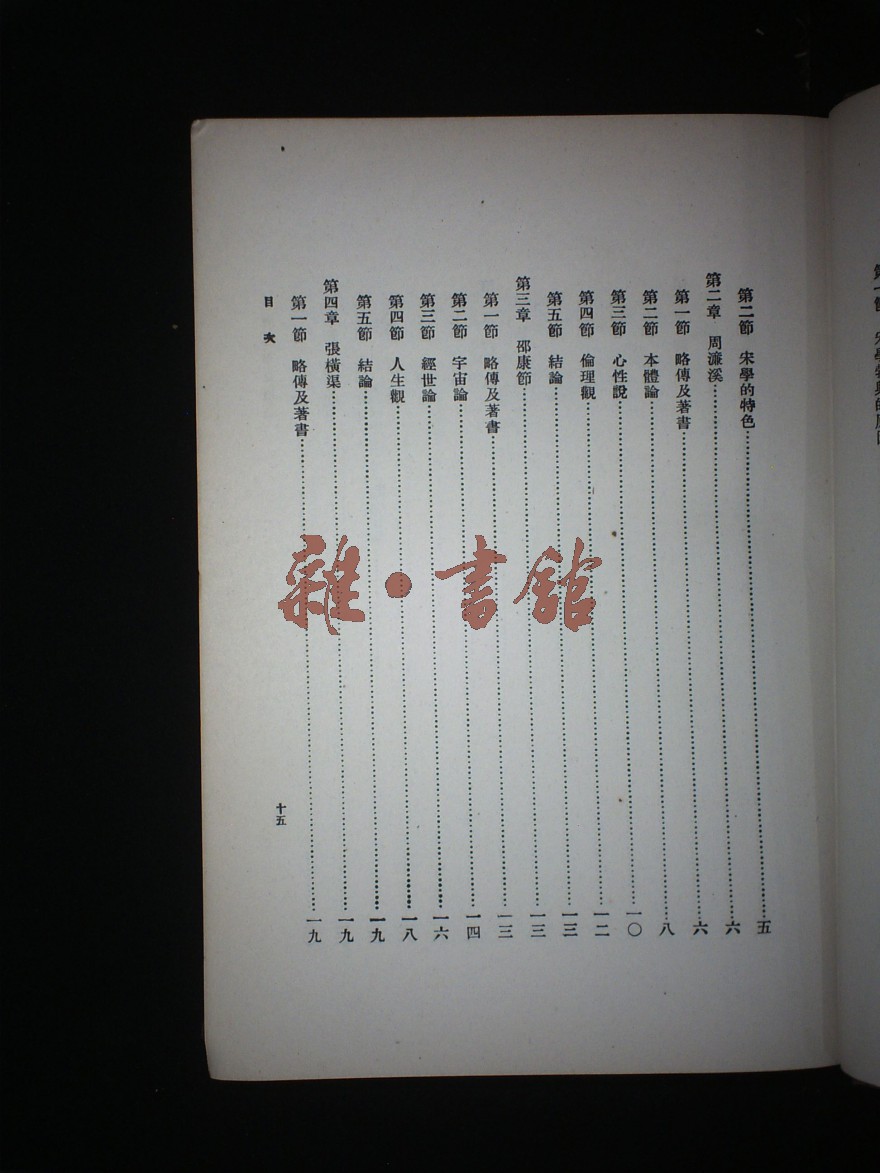 第二節　宋學的特色……五
第二章　周濂溪……六
第一節　略傳及著書……六
第二節　本體論……八
第三節　心性說……一〇
第四節　倫理觀……一二
第五節　結論……一三
第三章　邵康節……一三
第一節　略傳及著書……一三
第二節　宇宙論……一四
第三節　經世論……一六
第四節　人生觀……一八
第五節　結論……一九
第四章　張橫渠……一九
第一節　略傳及著書……一九
目次
十五
雜·書館